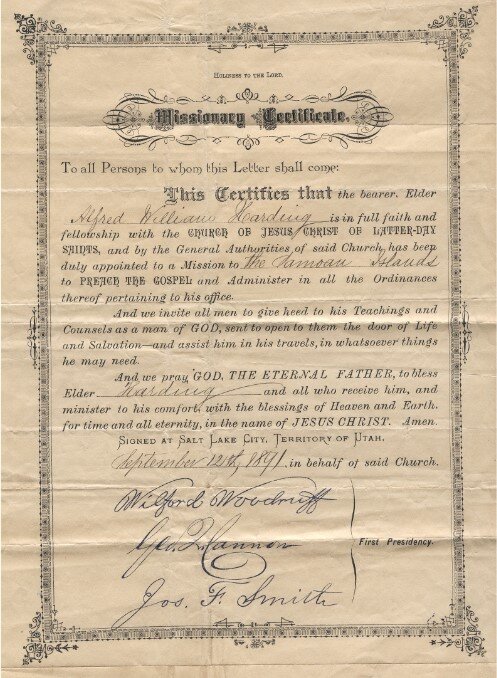 HOLINESS TO THE LORD.
Missionary Certificate.
To all Persons to whom this Letter shall come:
This Certifies that the bearer, Elder
Alfred William Harding is in full faith and
fellowship with the CHURCH OF JESUS CHRIST OF LATTER-DAY
SAINTS, and by the General Authorities of said Church, has been
duly appointed to a Mission to The Samoan Islands
to PREACH THE GOSPEL and Administer in all the Ordinances
thereof pertaining to his office.
And we invite all men to give heed to his Teachings and
Counsels as a man of GOD, sent to open to them the door of Life
and Salvation—and assist him in his travels, in whatsoever things
he may need.
And we pray GOD, THE ETERNAL FATHER, to bless
Elder Harding and all who receive him, and
minister to his comfort, with the blessings of Heaven and Earth,
for time and all eternity, in the name of JESUS CHRIST. Amen.
SIGNED AT SALT LAKE CITY, TERRITORY OF UTAH,
September 12th, 1891, in behalf of said Church.
Wilford Woodruff
Geo. Q. Cannon
First Presidency.
Jos. F. Smith